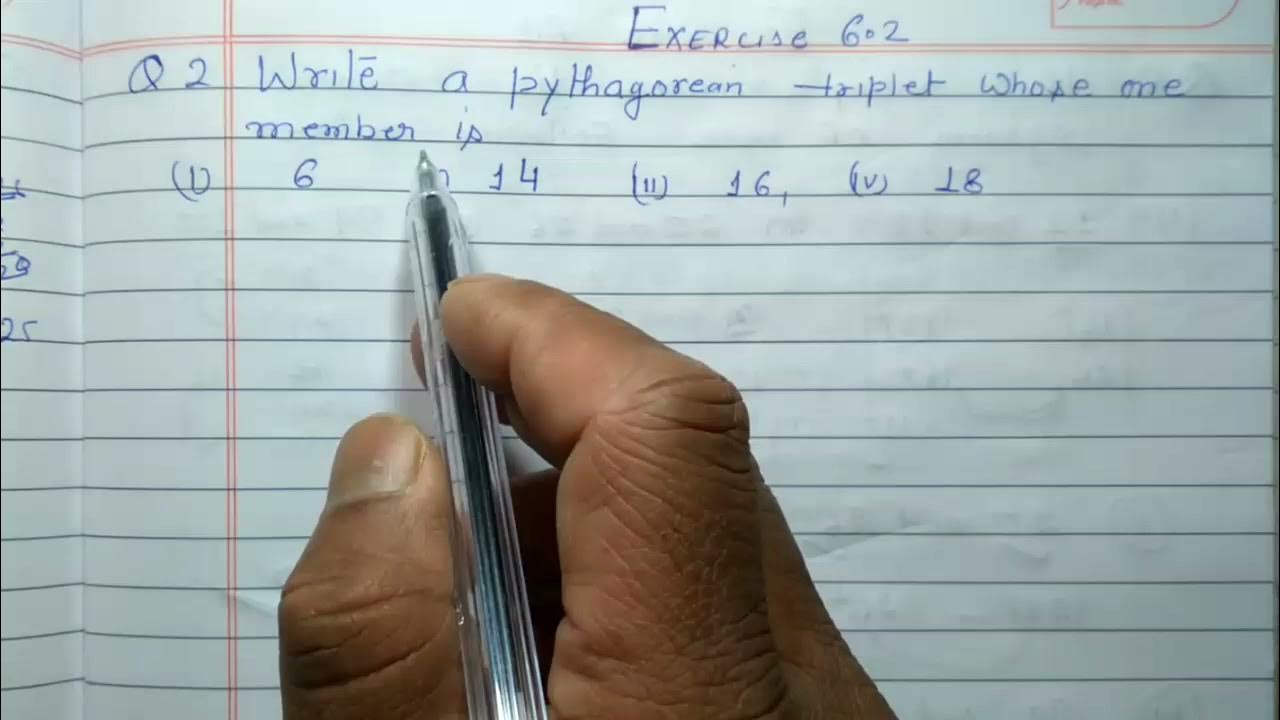 EXERCISE 6.2
Q 2 Write a pythagorean triplet whose one
member is
(I) 6 14 (III) 16, (IV) 18
25